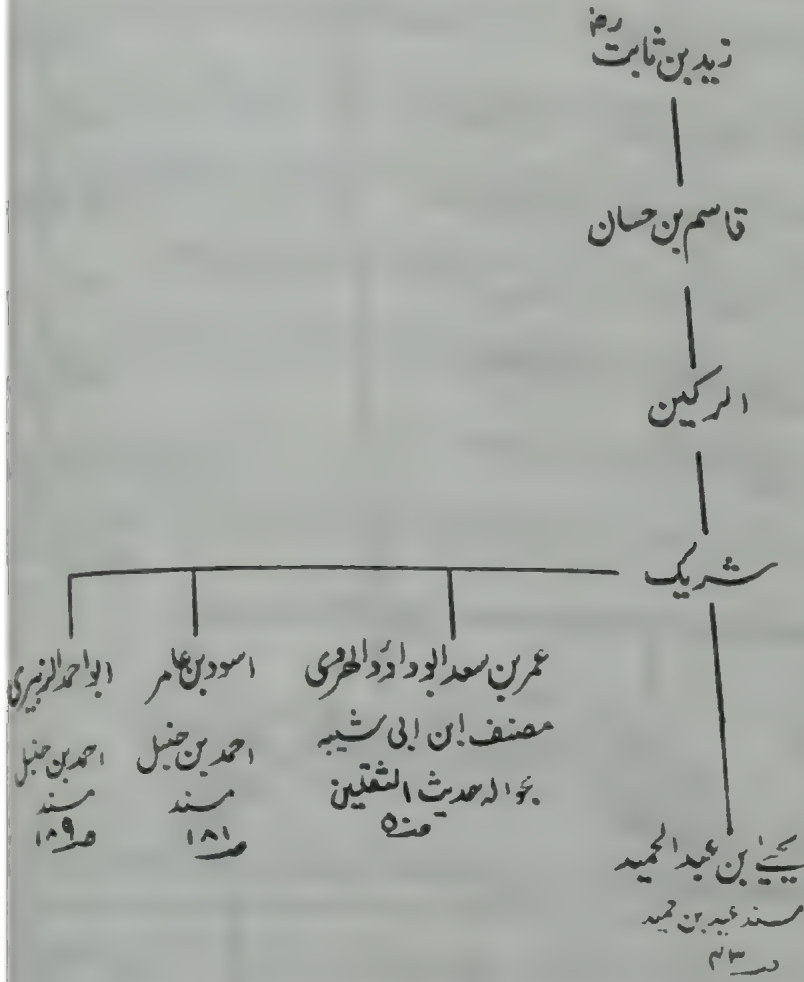 زید بن ثابت رض
قاسم بن حسان
الرکین
شریک
عمر بن سعد ابو داؤد الحفری
مصنف ابن ابی شیبہ
بحوالہ حدیث الثقلین
اسود بن عامر
احمد بن حنبل
مسند
صـ ۱۸۱
ابو احمد الزبیری
احمد بن حنبل
مسند
صـ ۱۸۹
یحییٰ بن عبد الحمید
مسند عبد بن حمید